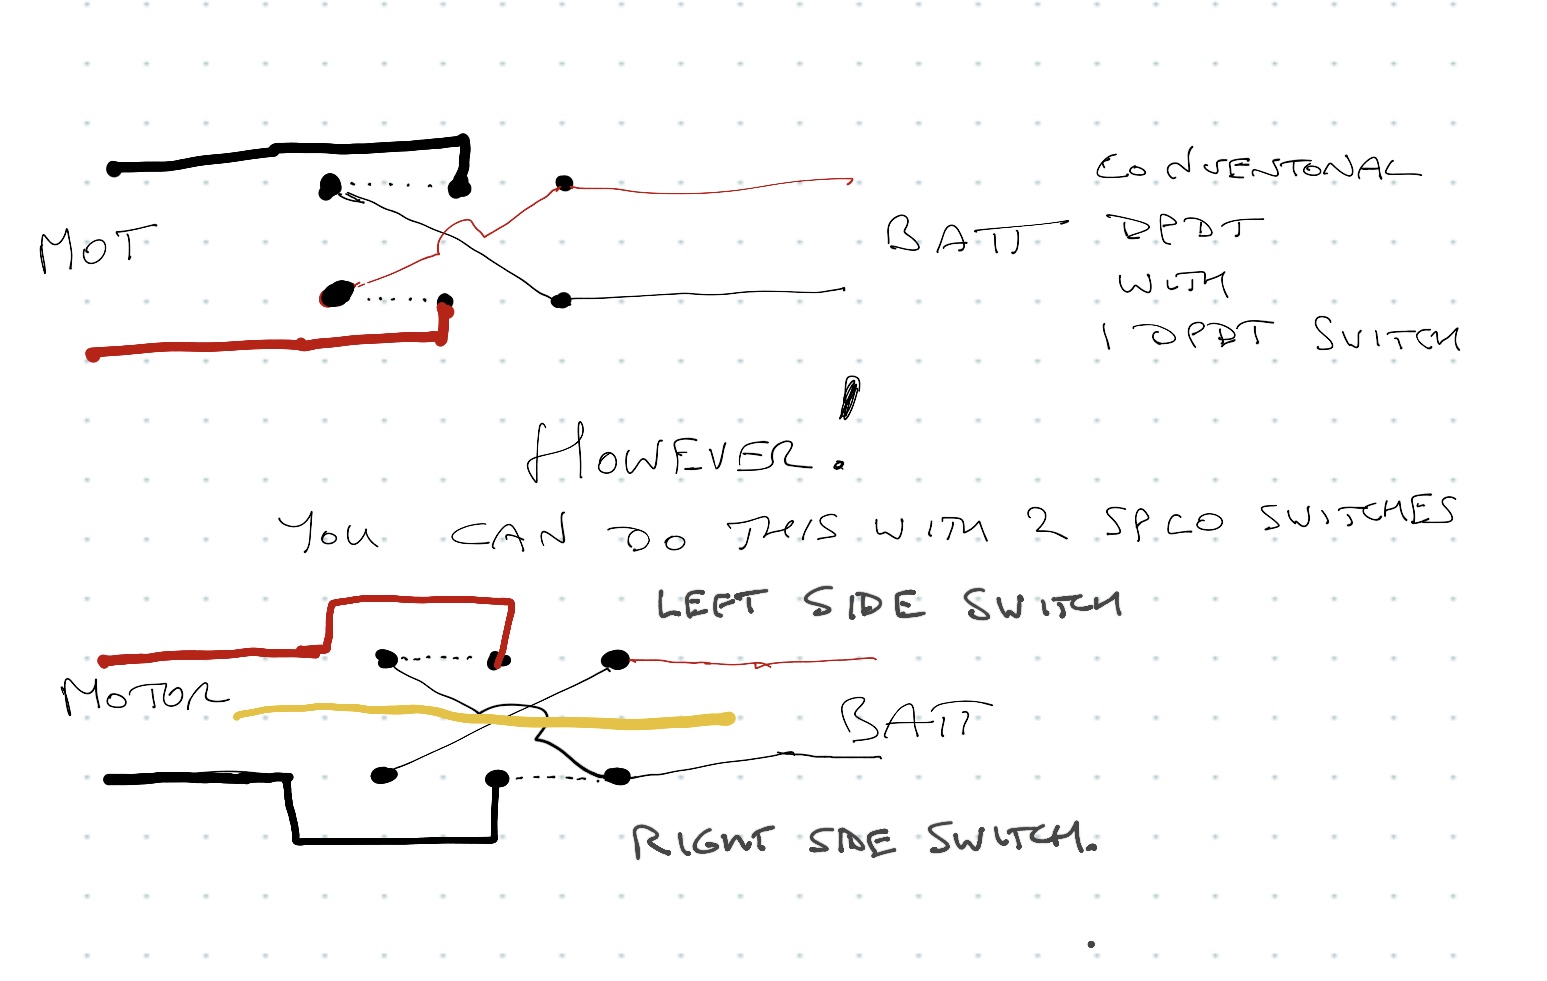 CONVENTONAL
MOT
BATT
DPDT
WITH
1 DPDT SWITCH
HOWEVER!
YOU CAN DO THIS WITH 2 SPCO SWITCHES
LEFT SIDE SWITCH
MOTOR
BATT
RIGHT SIDE SWITCH.